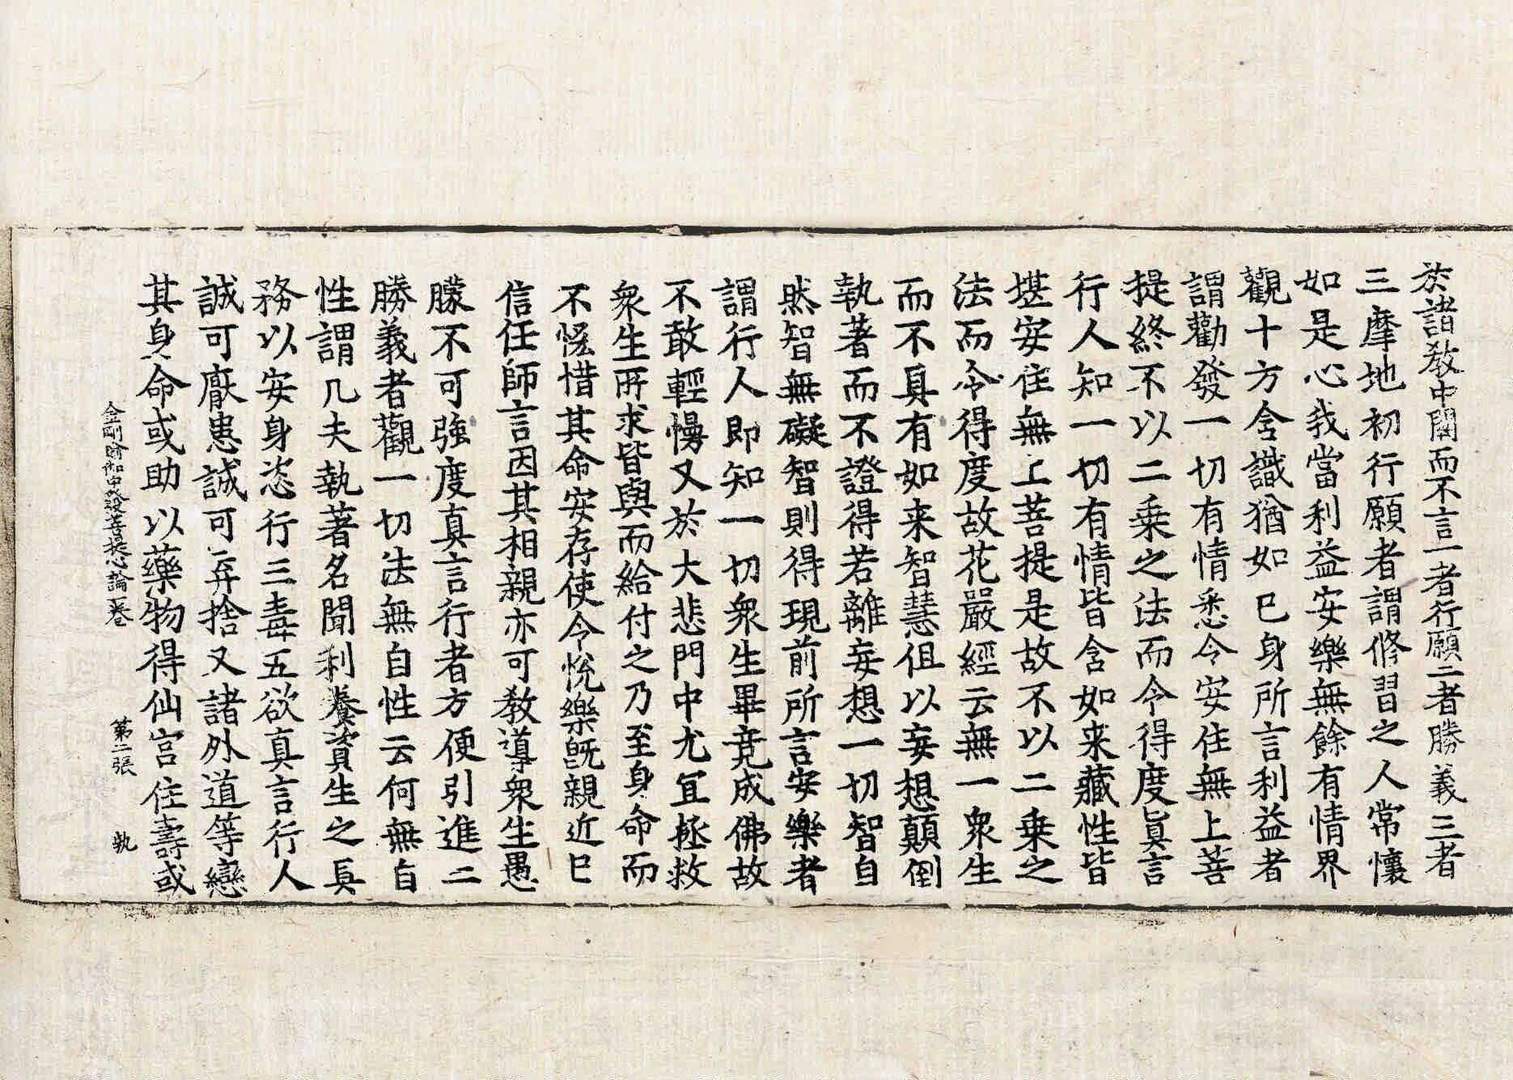 於諸教中闕而不言一者行願二者勝義三者
三摩地初行願者謂修習之人常懷
如是心我當利益安樂無餘有情界
觀十方含識猶如已身所言利益者
謂勸發一切有情悉令安住無上菩
提終不以二乗之法而令得度真言
行人知一切有情皆含如来藏性皆
堪安住無上菩提是故不以二乗之
法而令得度故花嚴經云無一衆生
而不具有如来智慧但以妄想顛倒
執著而不證得若離妄想一切智自
然智無礙智則得現前所言安樂者
謂行人即知一切衆生畢竟成佛故
不敢輕慢又於大悲門中尤宜拯救
衆生所求皆與而給付之乃至身命而
不悋惜其命安存使令悅樂旣親近已
信任師言因其相親亦可教導衆生愚
朦不可強度真言行者方便引進二
勝義者觀一切法無自性云何無自
性謂凡夫執著名聞利養資生之具
務以安身恣行三毒五欲真言行人
誠可厭患誠可弃捨又諸外道等戀
其身命或助以藥物得仙宮住壽或
金剛瑜伽中發菩提心論一卷 第二張 執